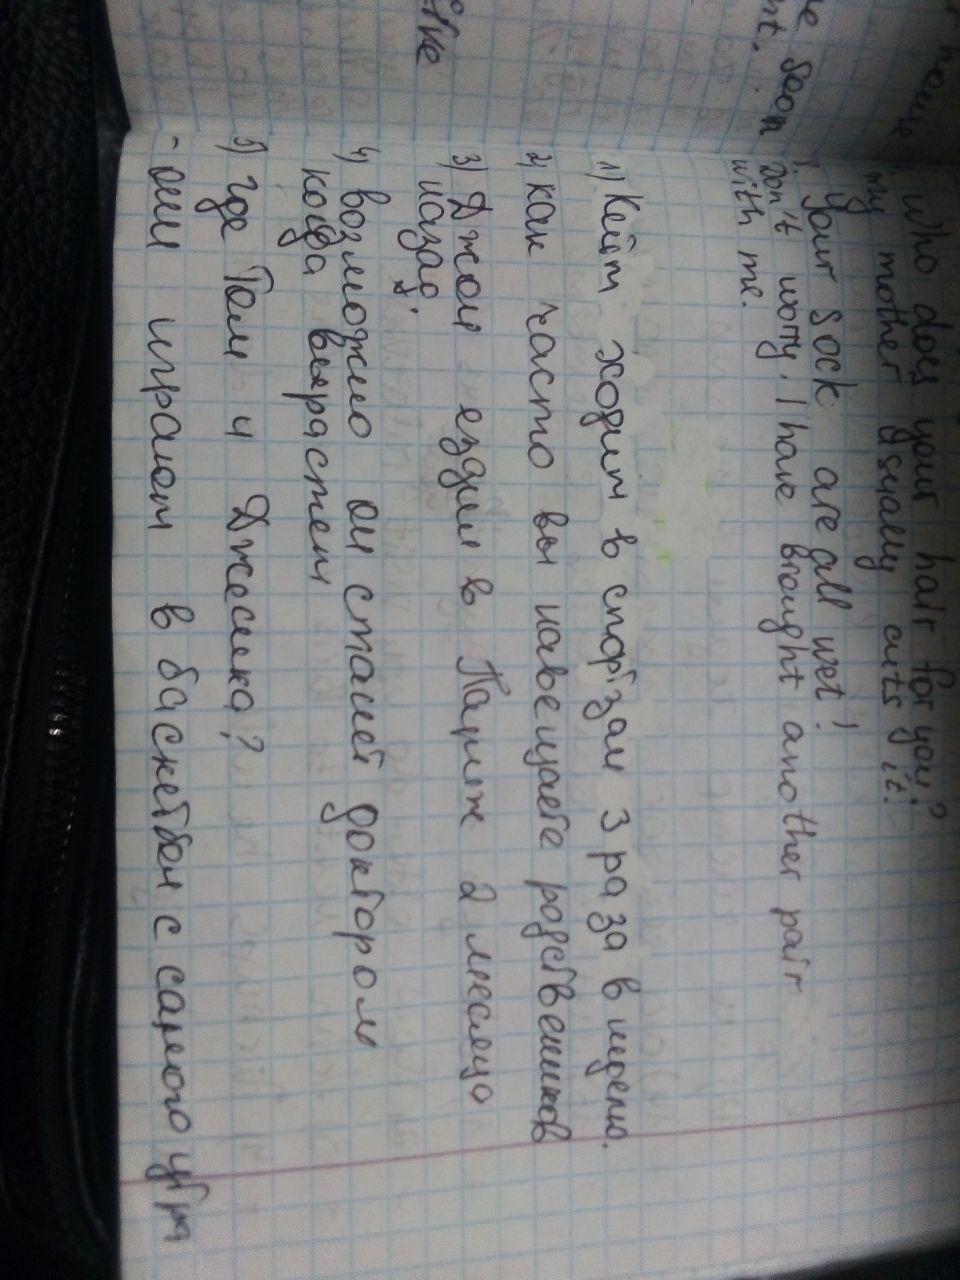 house
e soon
nt.
who does your hair for you?
my mother usually cuts it.
your sock are all wet!
Don't worry, I have brought another pair
with me.
1) Кейт ходит в спортзал 3 раза в неделю.
2) как часто вы навещаете родственников
3) Джон ездил в Париж 2 месяца
назад.
4) возможно он станет доктором
когда вырастет
5) где Том и Джессика?
- они играют в баскетбол с самого утра